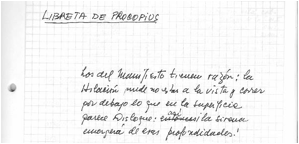 LIBRETA DE PROCOPIUS
Los del Manifiesto tienen razón: la
Hilación puede no estar a la vista y correr
por debajo lo que en la superficie
parece Dislogue: así la sirena
emergerá de esas profundidades.